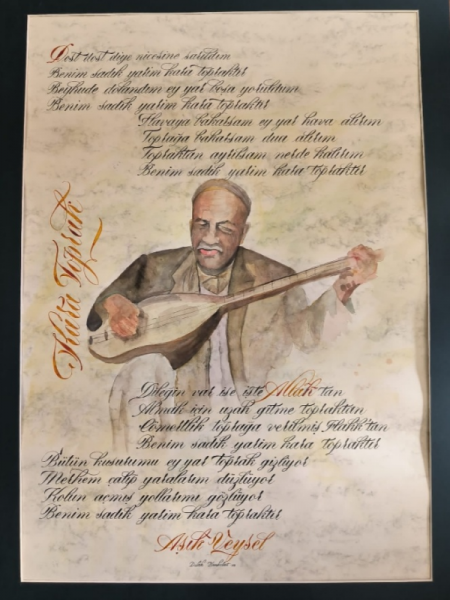 Dost dost diye nicesine sarıldım
Benim sadık yarim kara topraktır
Beyhude dolandım ey yar boşa yoruldum
Benim sadık yarim kara topraktır
Havaya bakarsam ey yar hava alırım
Toprağa bakarsam dua alırım
Topraktan ayrılsam nerde kalırım
Benim sadık yarim kara topraktır
Kara Toprak
Dileğin var ise iste Allah'tan
Almak için uzak gitme topraktan
Cömertlik toprağa verilmiş Hakk'tan
Benim sadık yarim kara topraktır
Bütün kusurumu ey yar toprak gizliyor
Merhem çalıp yaralarım düzlüyor
Kolun açmış yollarımı gözlüyor
Benim sadık yarim kara topraktır
Aşık Veysel